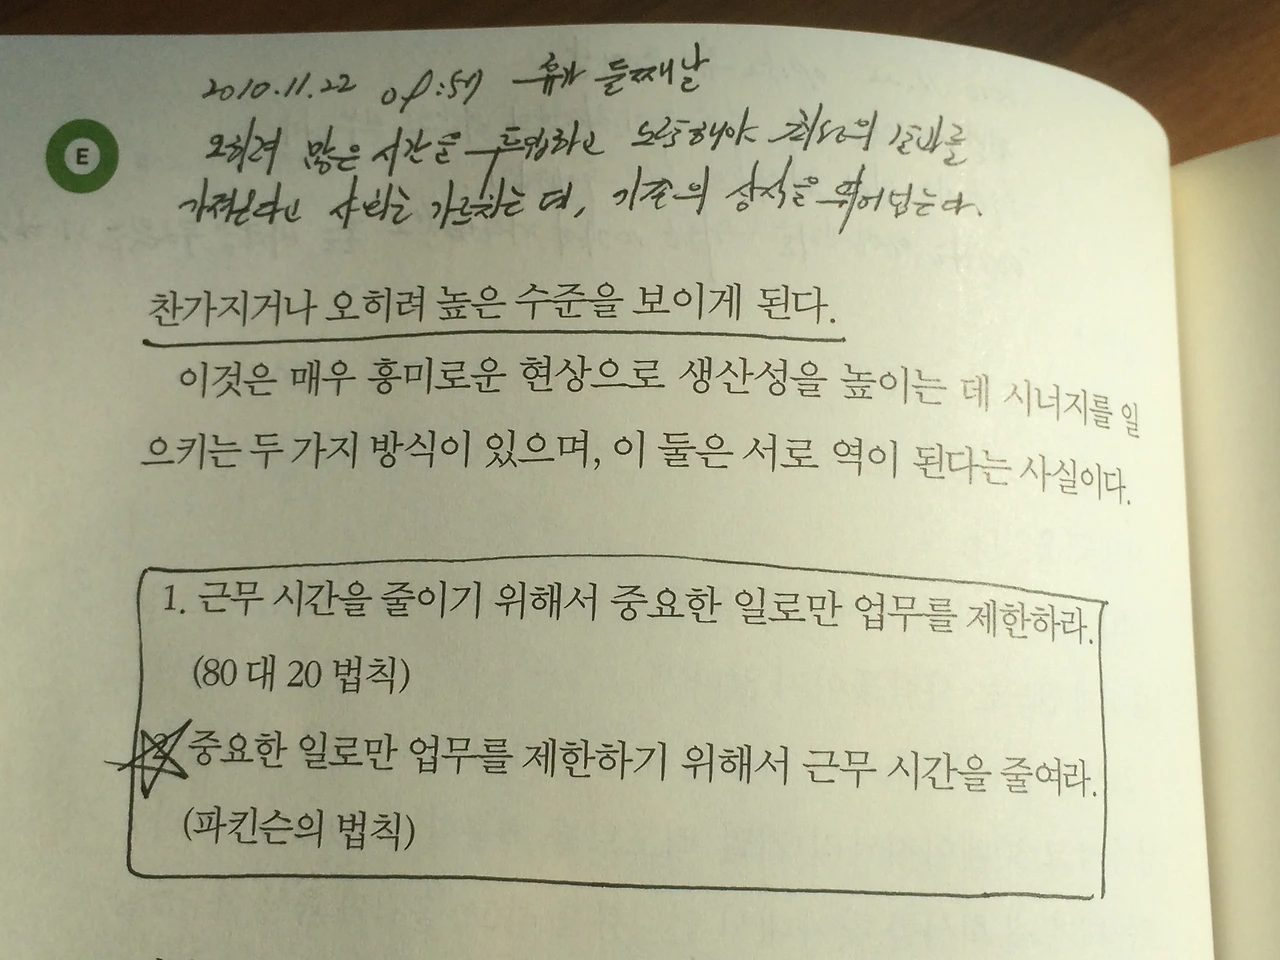 2010.11.22 07:57 휴가 둘째날
E
오히려 많은 시간을 투입하고 노력해야 최고의 결과를
가져온다고 사회는 가르치는데, 기존의 상식을 뛰어넘는다.
찬가지거나 오히려 높은 수준을 보이게 된다.
이것은 매우 흥미로운 현상으로 생산성을 높이는 데 시너지를 일
으키는 두 가지 방식이 있으며, 이 둘은 서로 역이 된다는 사실이다.
1. 근무 시간을 줄이기 위해서 중요한 일로만 업무를 제한하라.
(80 대 20 법칙)
2. 중요한 일로만 업무를 제한하기 위해서 근무 시간을 줄여라.
(파킨슨의 법칙)